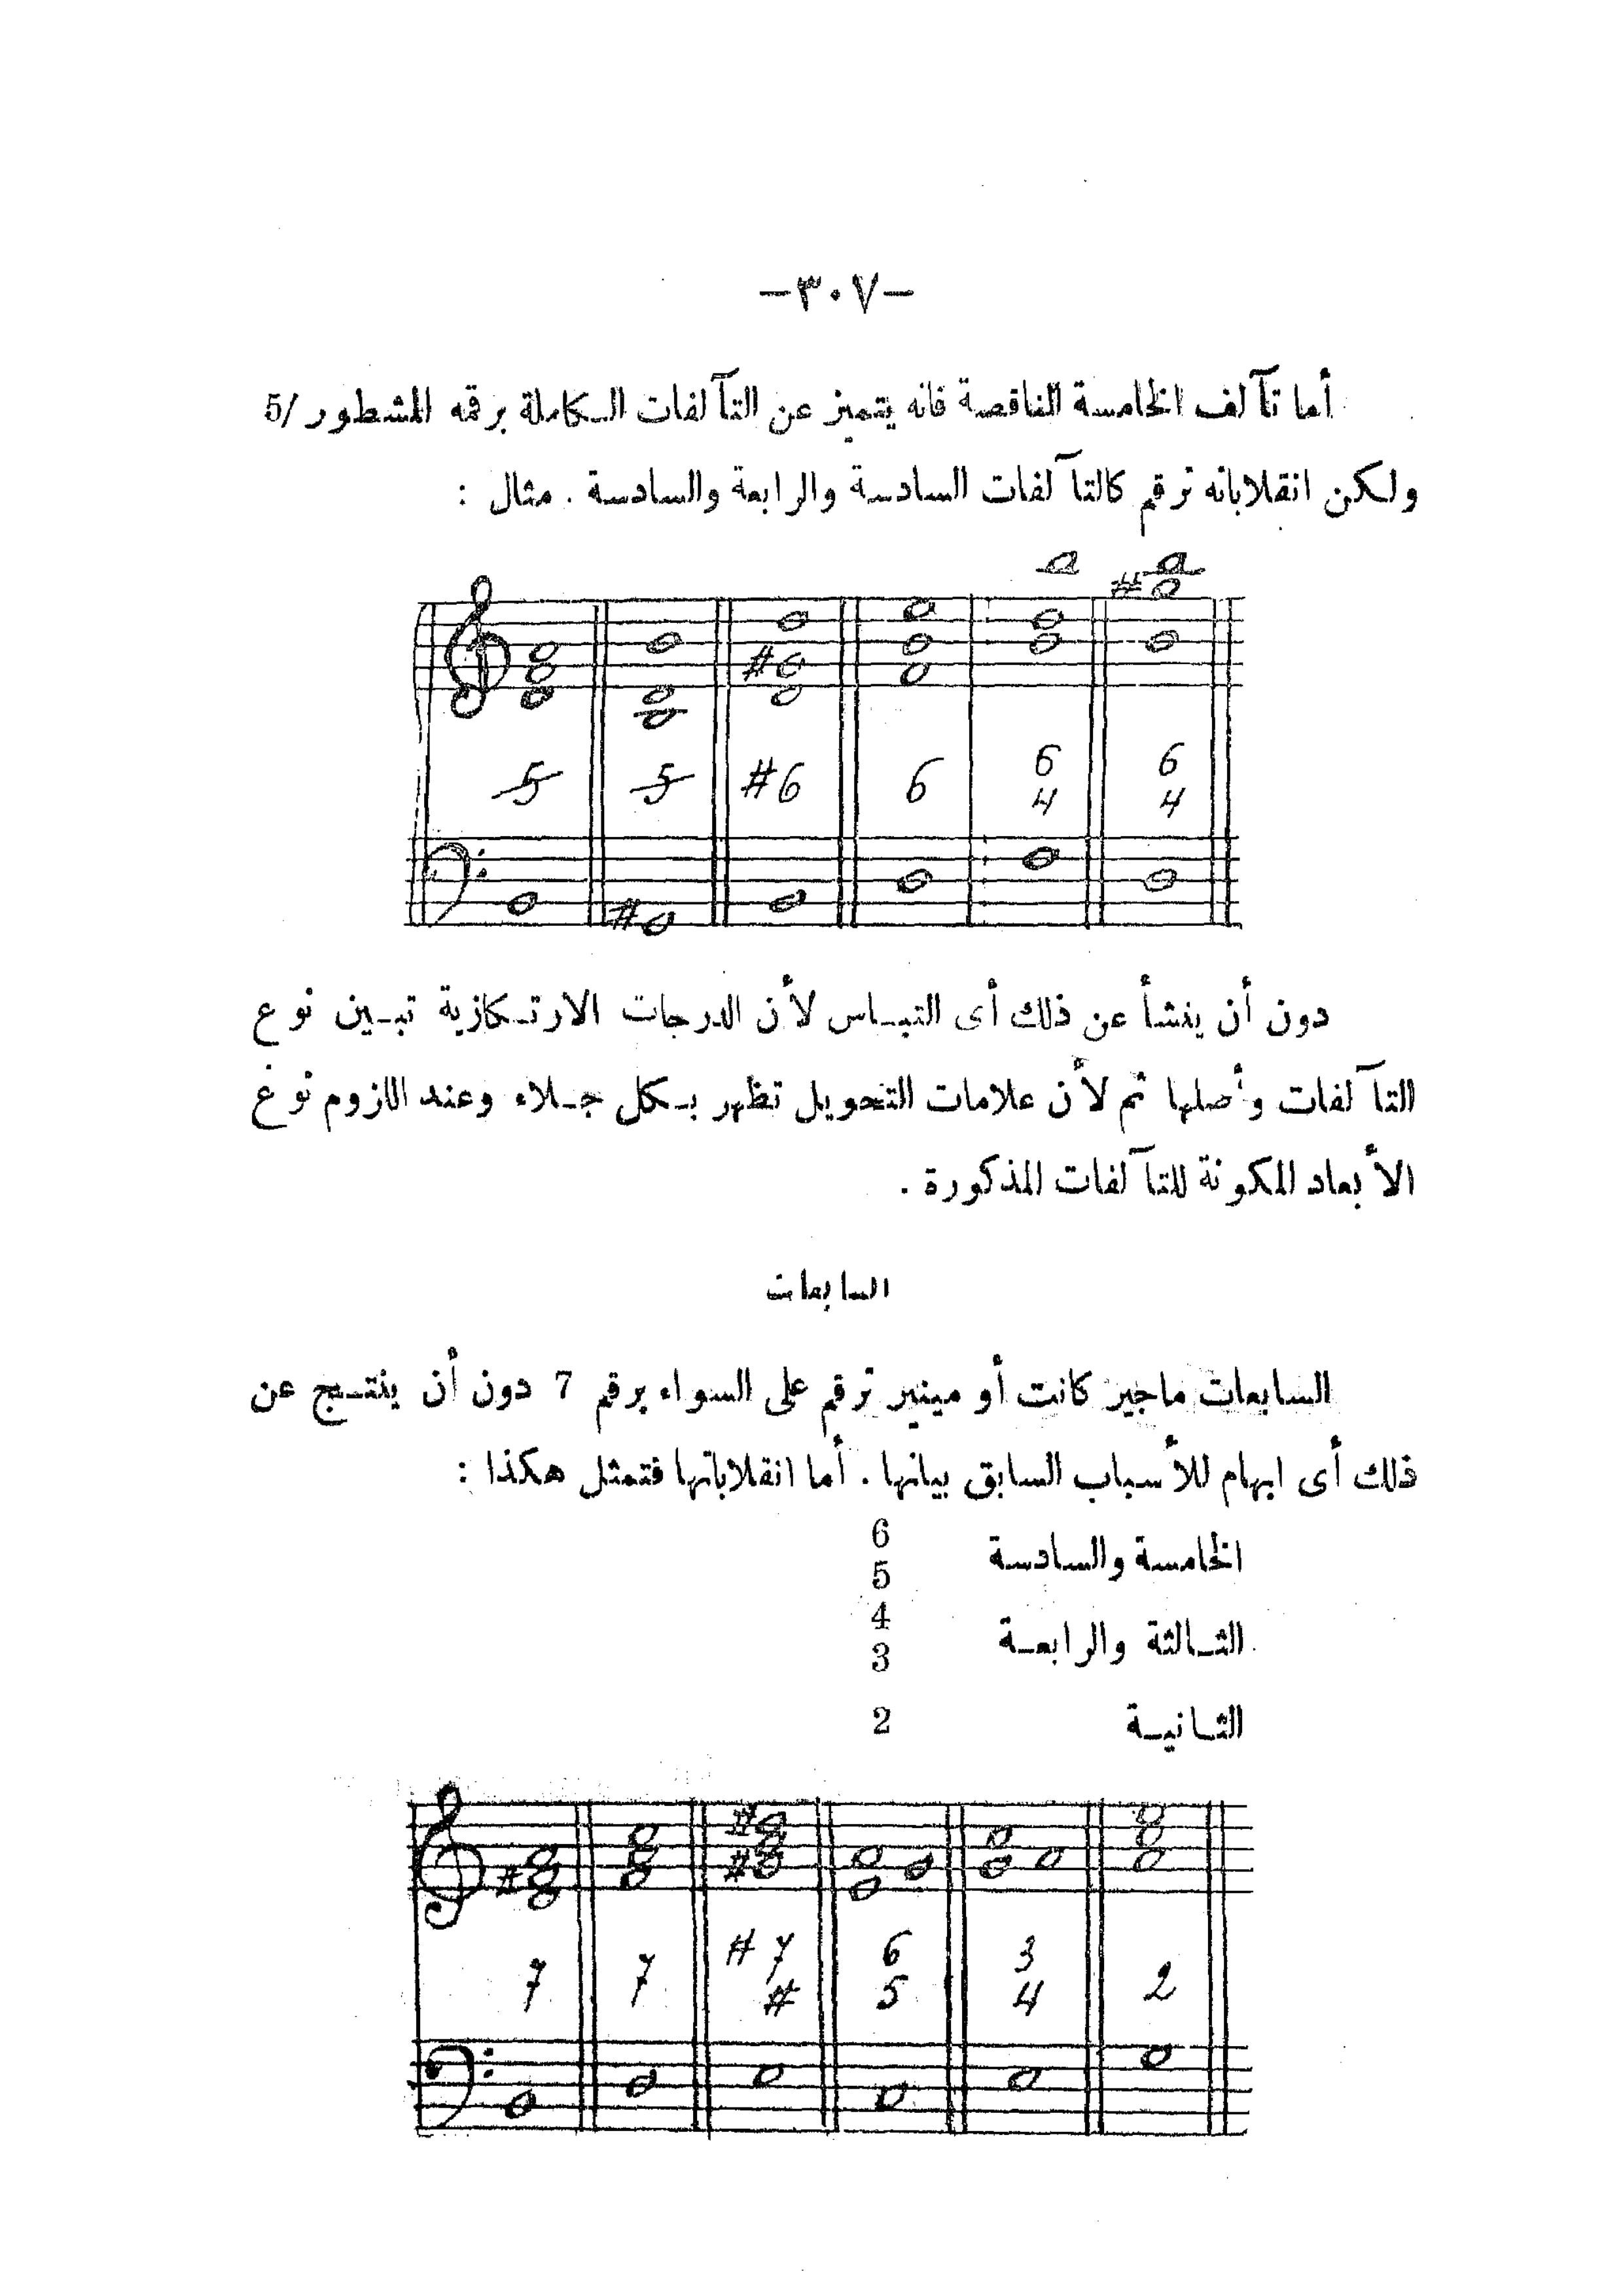 -٣٠٧-
أما تآلف الخامسة الناقصة فانه يتميز عن التآلفات الكاملة برقمه المشطور /5
ولكن انقلاباته ترقم كالتآلفات السادسة والرابعة والسادسة . مثال :
5 5 #6 6 6 6
4 4
دون أن ينشأ عن ذلك أى التباس لأن الدرجات الارتكازية تبين نوع
التآلفات وأصلها ثم لأن علامات التحويل تظهر بكل جلاء وعند اللزوم نوع
الأبعاد المكونة للتآلفات المذكورة .
السابعات
السابعات ماجير كانت أو مينير ترقم على السواء برقم 7 دون أن ينتج عن
ذلك أى ابهام للأسباب السابق بيانها . أما انقلاباتها فتمثل هكذا :
الخامسة والسادسة 6
5
الثالثة والرابعة 4
3
الثانية 2
7 7 #7 6 3 2
# 5 4